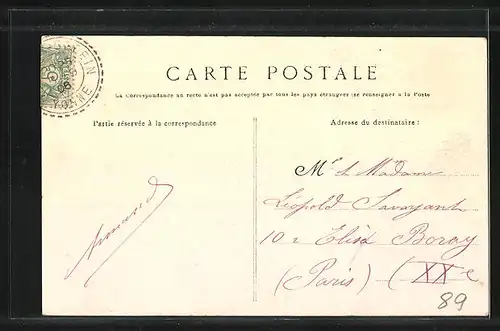 CARTE POSTALE
La Correspondance au recto n'est pas acceptée par tous les pays étrangers (se renseigner à la Poste
Partie réservée à la correspondance
Adresse du destinataire :
Mr et Madame
Léopold Savoyant
10 r Elisa Borey
(Paris) (XXe
Armand
89
YONNE